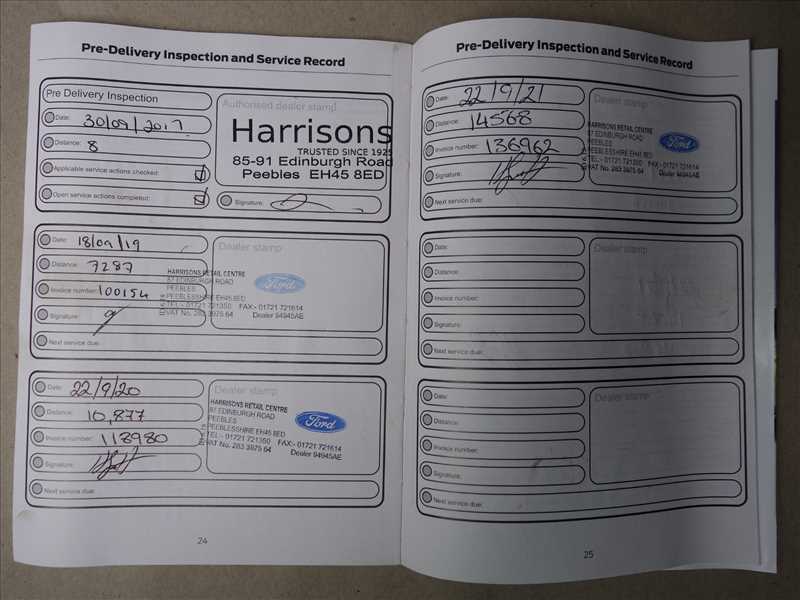 Pre-Delivery Inspection and Service Record
Pre Delivery Inspection
Date: 30/09/2017
Distance: 8
Applicable service actions checked:
Open service actions completed:
Authorised dealer stamp
Harrisons
TRUSTED SINCE 1925
85-91 Edinburgh Road
Peebles EH45 8ED
Signature:
Date: 18/09/19
Distance: 7287
Invoice number: 100154
Signature:
Next service due:
Dealer stamp
HARRISONS RETAIL CENTRE
87 EDINBURGH ROAD
PEEBLES
PEEBLESSHIRE EH45 8ED
TEL:- 01721 721350 FAX:- 01721 721614
VAT No. 283 3975 64 Dealer 94945AE
Ford
Date: 22/9/20
Distance: 10,877
Invoice number: 118980
Signature:
Next service due:
Dealer stamp
HARRISONS RETAIL CENTRE
87 EDINBURGH ROAD
PEEBLES
PEEBLESSHIRE EH45 8ED
TEL:- 01721 721350 FAX:- 01721 721614
VAT No. 283 3975 64 Dealer 94945AE
Ford
24
Pre-Delivery Inspection and Service Record
Date: 22/9/21
Distance: 14568
Invoice number: 136962
Signature:
Next service due:
Dealer stamp
HARRISONS RETAIL CENTRE
87 EDINBURGH ROAD
PEEBLES
PEEBLESSHIRE EH45 8ED
TEL:- 01721 721350 FAX:- 01721 721614
VAT No. 283 3975 64 Dealer 94945AE
Ford
Date:
Distance:
Invoice number:
Signature:
Next service due:
Dealer stamp
Date:
Distance:
Invoice number:
Signature:
Next service due:
Dealer stamp
25